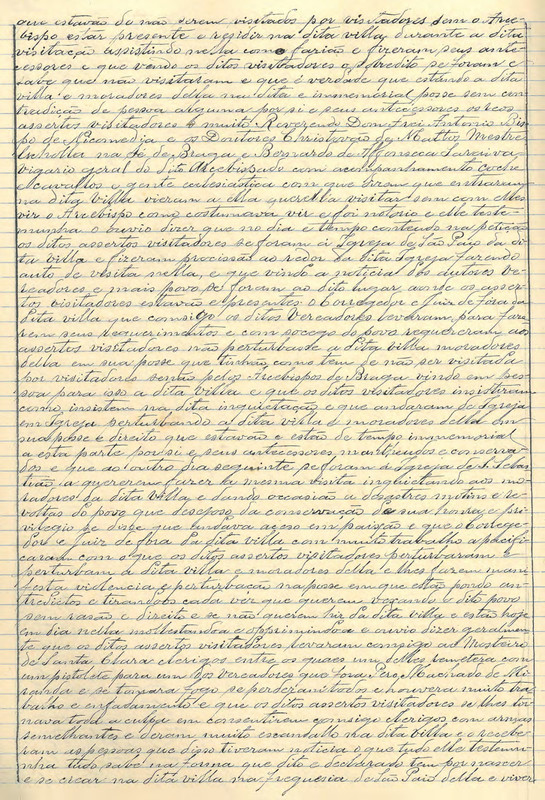 que estavão de não serem visitados por visitadores sem o Arce-
bispo estar presente e residir na dita villa, durante a dita
visitação assistindo nella como farião e fizeram seus ante-
cessores e que vendo os ditos visitadores o sobredito se foram e
sabe que não visitaram e que é verdade que estando a dita
villa e moradores della na dita e immemorial posse sem con-
tradição de pessoa alguma por si e seus antecessores os reos
assertos visitadores o muito Reverendo Dom Frei Antonio Bis-
po de Nicomedia e os Doutores Christovão de Mattos Mestre
eschola na Sé de Braga e Bernardo da Affonseca Saraiva
vigario geral do dito Arcebispado com acompanhamento coche
e cavallos e gente eclesiástica com que tirem que entraram
na dita villa vieram a ella querella visitar sem com elles
vir o Arcebispo como costumava vir e foi notorio e elle teste-
munha o ouvio dizer que no dia e tempo conteudo na petição
os ditos assertos visitadores se foram á Igreja de São Paio da di-
ta villa e fizeram procissão ao redor da dita Igreja fazendo
auto de visita nella, e que vindo a noticia dos autores ve-
readores e mais povo se foram ao dito lugar aonde os asser-
tos visitadores estavão e presentes o Corregedor e Juiz de fóra da
dita villa que comsigo os ditos Vereadores levaram para faze-
rem seus requerimentos e com socego do povo requereram aos
assertos visitadores não perturbasse a dita villa moradores
della em sua posse que tinhão como tem de não ser visitada
por visitadores senão pelos Arcebispos de Braga vindo em pes-
soa para isso a dita Villa e que os ditos visitadores insistiram
como insistem na dita inquietação e que andaram de Igreja
em Igreja perturbando a dita villa e moradores della em
sua posse e direito que estavão e estão de tempo immemorial
a esta parte por si e seus antecessores mantheudos e conserva-
dos e que ao outro dia seguinte se foram á Igreja de S. Sebas-
tião a quererem fazer la mesma visita inquietando aos mo-
radores da dita villa, e dando occasião a desastres motins e re-
voltas do povo que desejoso da conservação de sua honra e pri-
vilegio se disse que andava aceso em paixão e que o Correge-
dor e Juiz de fóra da dita villa com muito trabalho a pacifi-
caram com o que os ditos assertos visitadores perturbaram e
perturbam a dita villa e moradores della e lhes fazem mani-
festa violencia e perturbação na posse em que estão pondo en-
tredictos e tirando-os cada vez que querem vexando o dito povo
sem rasão e direito e se não querem hir da dita villa e estão hoje
em dia nella molestando-a e opprimindo-a e ouvio dizer geralmen-
te que os ditos assertos visitadores levaram comsigo ao Mosteiro
de Santa Clara clerigos entre os quaes um delles remetera com
um pistolete para um dos vereadores que fóra Pero Machado de Mi-
randa e se tomara fogo se perderam todos e houvera muito tra-
balho e enfadamento e que os ditos assertos visitadores se lhes tor-
nava toda a culpa em consentirem comsigo clerigos com armas
semelhantes e deram muito escandallo na dita villa e o recebe-
ram as pessoas que disso tiveram noticia o que tudo elle testemu-
nha tudo sabe na forma que dito e declarado tem por nascer
e se crear na dita villa na freguesia de São Paio della e viver